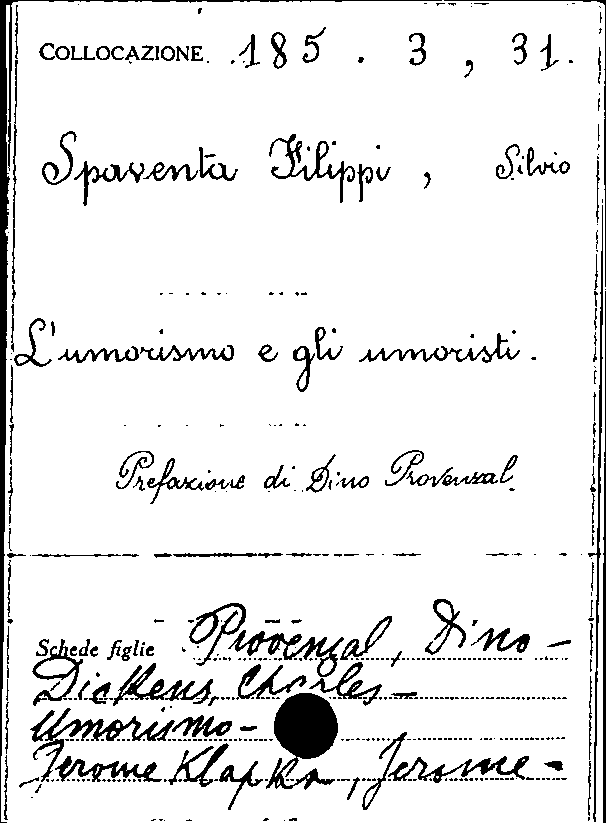 COLLOCAZIONE. 185 . 3 , 31.
Spaventa Filippi , Silvio
L'umorismo e gli umoristi.
Prefazione di Dino Provenzal.
Schede figlie Provenzal, Dino -
Dickens, Charles -
Umorismo -
Jerome Klapka, Jerome -